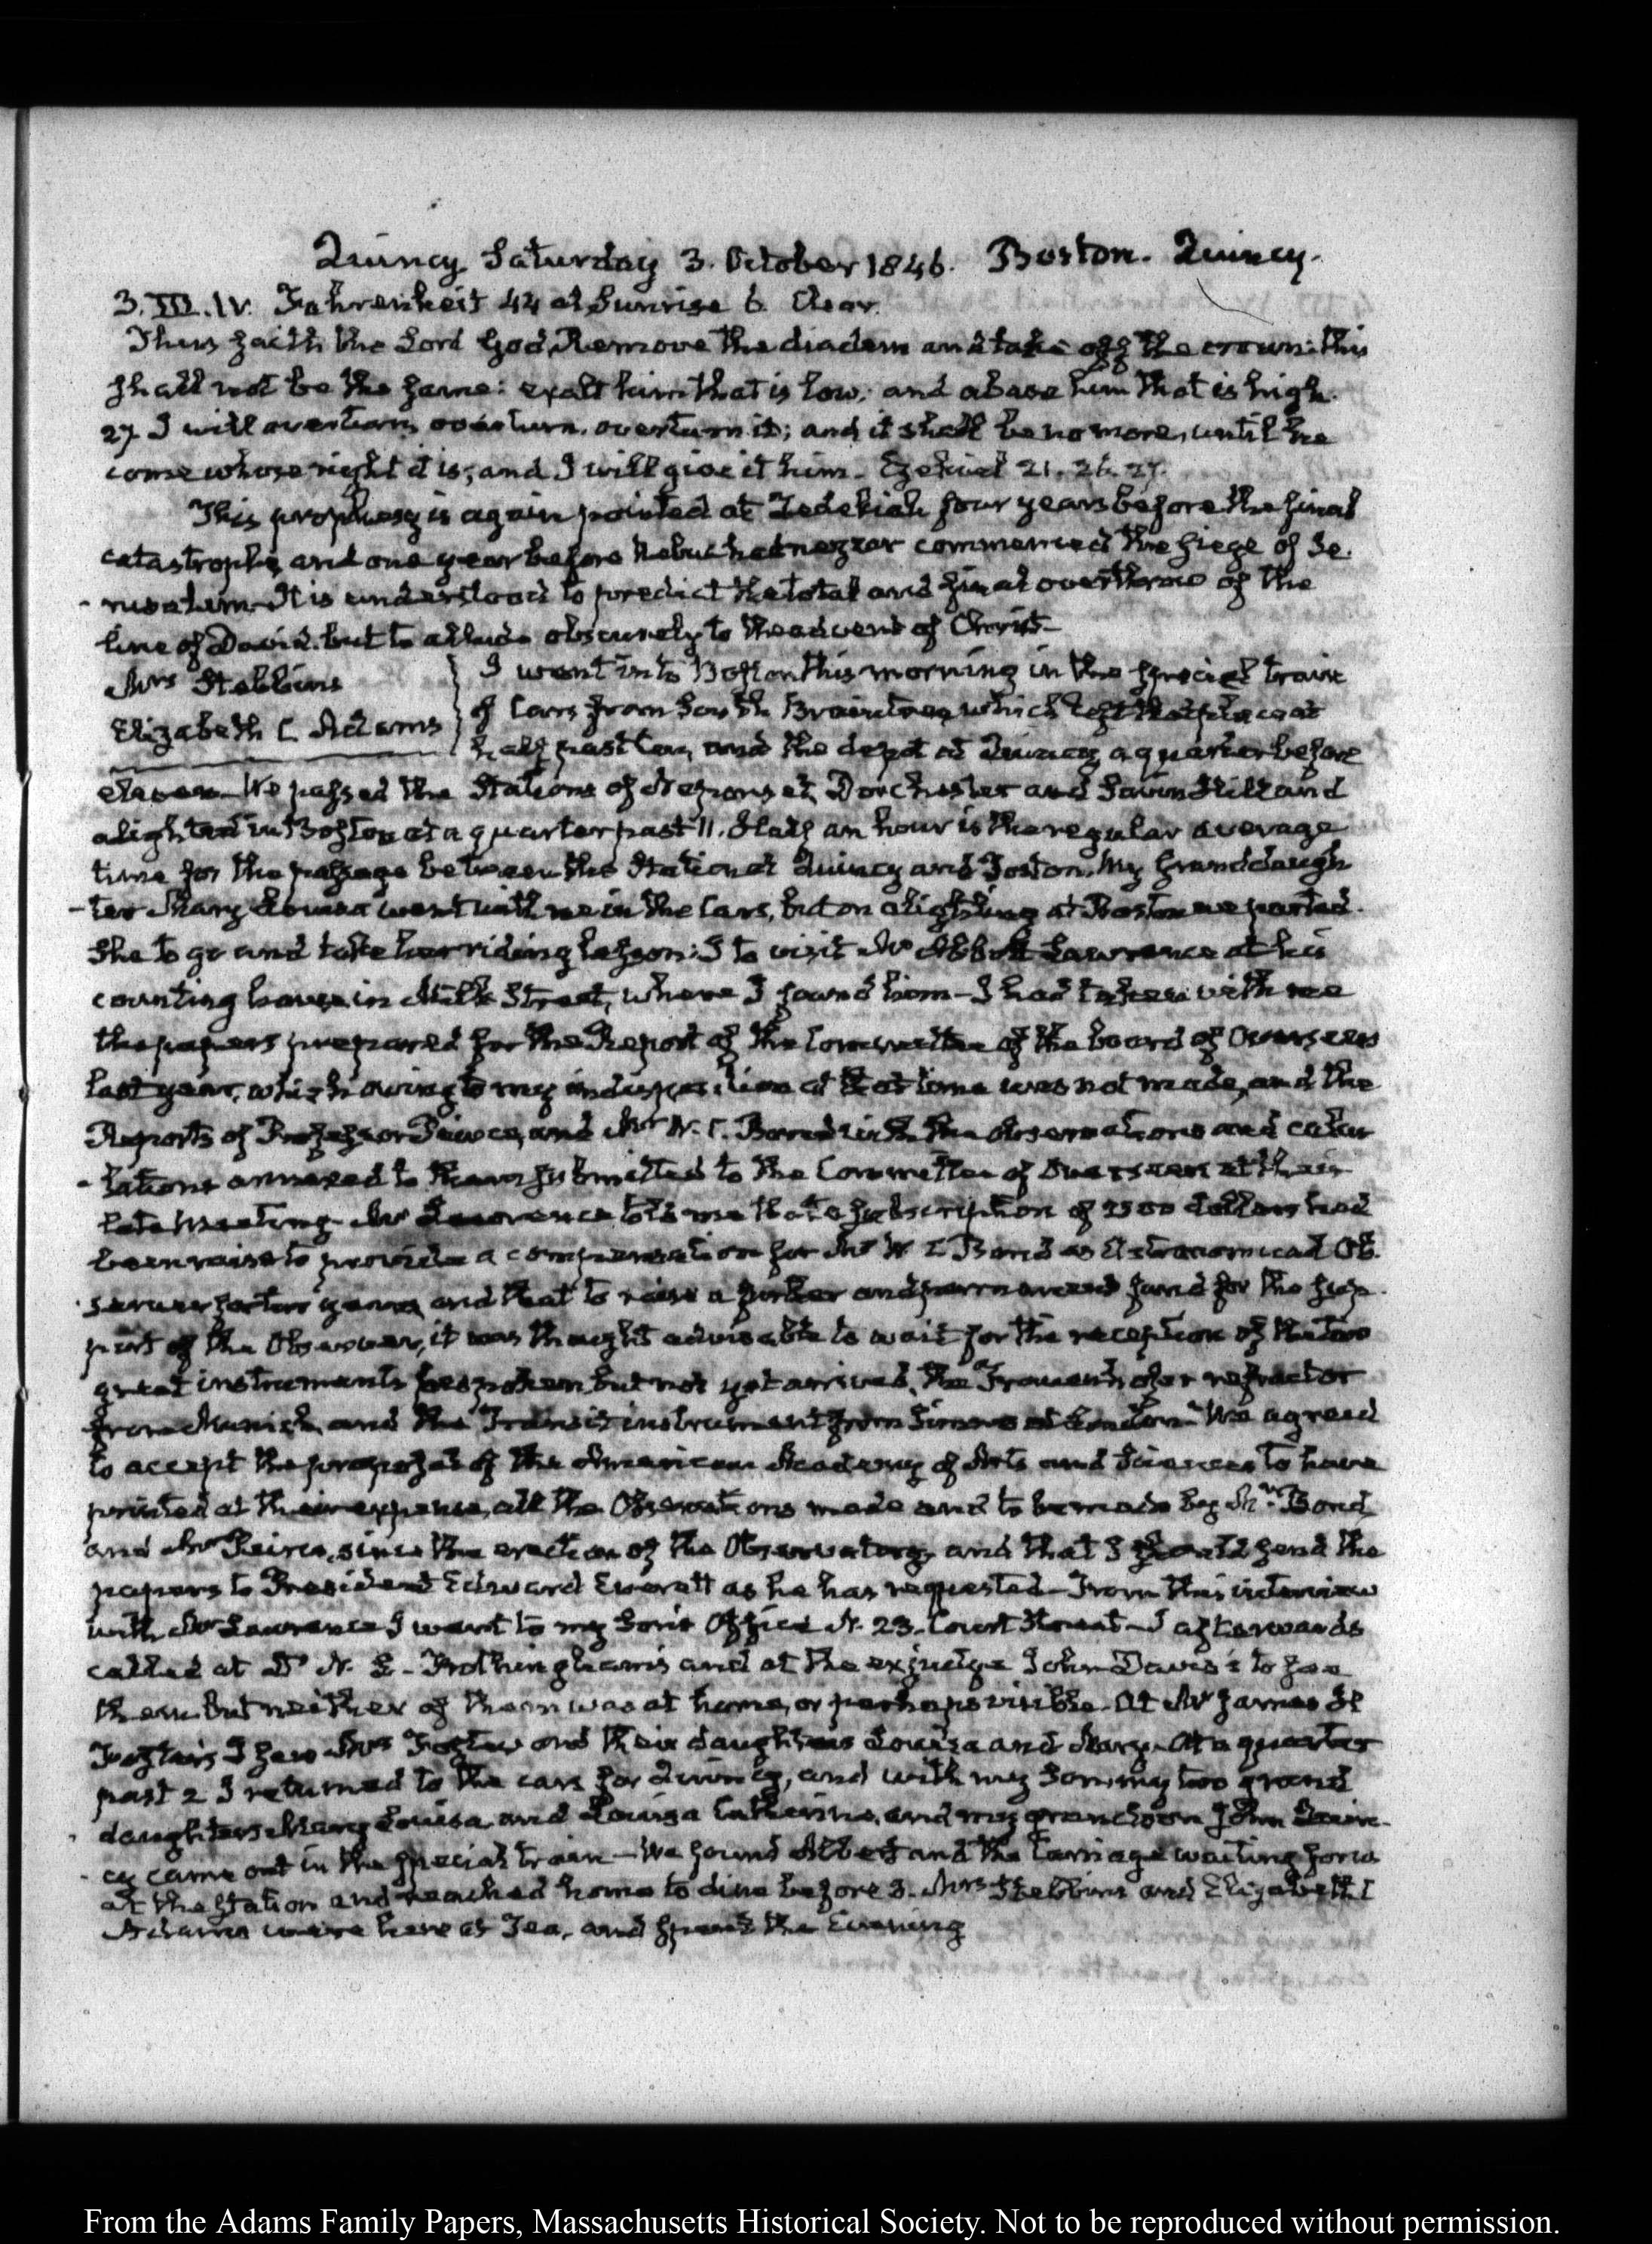 Quincy Saturday 3. October 1846. Boston. Quincy.
3. III. IV. Fahrenheit 44 at Sunrise 6. Clear.
Thus saith the Lord God, Remove the diadem and take off the crown: this
shall not be the same: exalt him that is low, and abase him that is high.
27. I will overturn, overturn, overturn it; and it shall be no more, until he
come whose right it is; and I will give it him. Ezekiel 21. 26. 27.
This prophesy is again pointed at Zedekiah four years before the final
catastrophe, and one year before Nebuchadnezzar commenced the siege of Je-
-rusalem. It is understood to predict the total and final overthrow of the
line of David. but to allude obscurely to the advent of Christ—
Mrs Stebbins
Elizabeth C. Adams
I went into Boston this morning in the special train
of Cars from South Braintree which left that place at
half past ten, and the depot at Quincy a quarter before
eleven. We passed the Stations of Neponset, Dorchester and Savin Hill and
alighted in Boston at a quarter past 11. Half an hour is the regular average
time for the passage between the Station at Quincy and Boston. My Granddaugh
-ter Mary Louisa went with me in the Cars, but on alighting at Boston we parted.
She to go and take her riding lesson: I to visit Mr Abbott Lawrence at his
counting house in Milk Street, where I found him—I had taken with me
the papers prepared for the Report of the Committee of the board of Overseers
last year, which owing to my indisposition at that time was not made, and the
Reports of Professor Peirce, and Mr W. C. Bond with the observations and calcu
-lations annexed to them submitted to the Committee of Overseers at their
late Meeting. Mr Lawrence told me that a subscription of 2500 dollars had
been raised to provide a compensation for Mr W. C Bond as Astronomical Ob-
-server for two years, and that to raise a further and permanent fund for the sup-
port of the Observer, it was thought advisable to wait for the reception of the two
great instruments bespoken but not yet arrived, the Frauenhofer refractor
from Munich, and the Transit instrument from Simms at London. We agreed
to accept the proposal of the American Academy of Arts and Sciences to have
printed at their expense, all the Observations made and to be made by Mr Bond,
and Mr Peirce, since the erection of the Observatory and that I should send the
papers to President Edward Everett as he has requested—From this interview
with Mr Lawrence I went to my Son's Office N. 23. Court Street—I afterwards
called at Dr N. L. Frothingham's and at the ex judge John Davis's to see
them. but neither of them was at home, or perhaps visible. At Mr James H
Foster's I saw Mrs Foster and their daughters Louisa and Mary. At a quarter
past 2 I returned to the cars for Quincy, and with my Son, my two grand
daughters Mary Louisa and Louisa Catherine, and my grandson John Quin-
-cy came out in the special train—We found Albert and the Carriage waiting for us
at the station and reached home to dine before 3. Mrs Stebbins and Elizabeth C
Adams were here at Tea, and spent the Evening
From the Adams Family Papers, Massachusetts Historical Society. Not to be reproduced without permission.